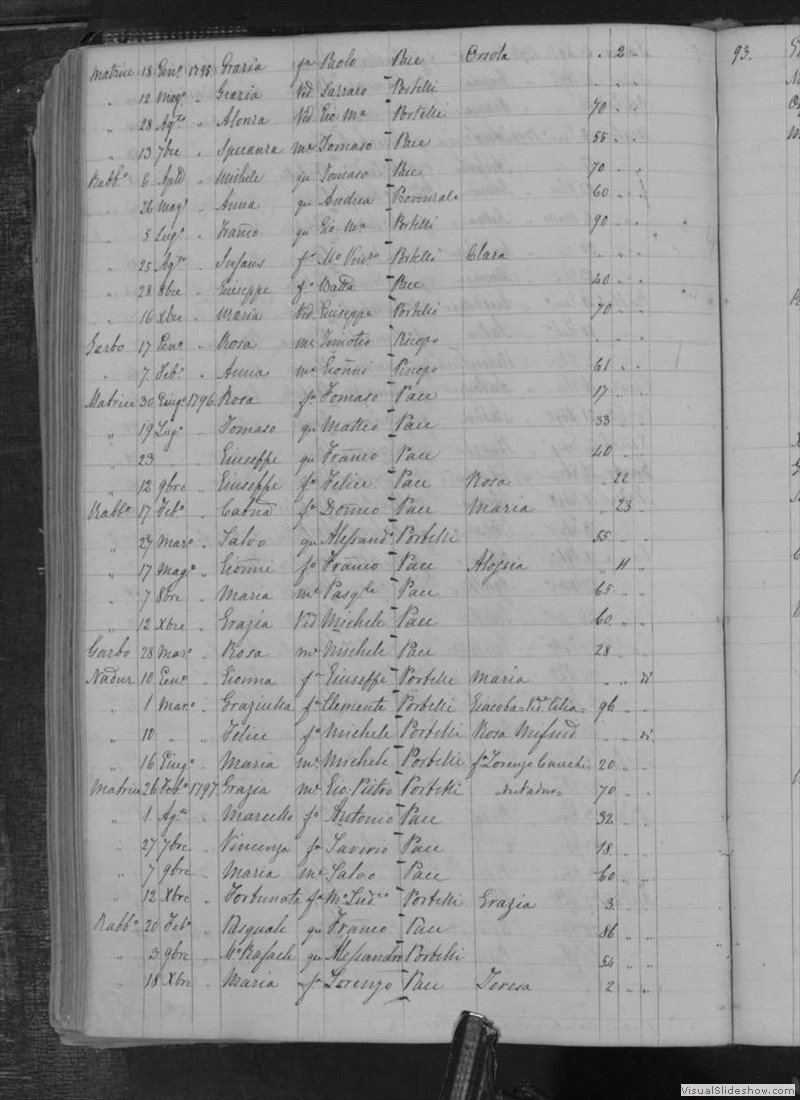 93.
Matrice 18 Genº 1795 Grazia fª Paolo Pace Orsola . 2 .
" 12 Magº " Grazia Vid Portelli
" 28 Agto " Alonza Vid Gio Mª Portelli 70
" 13 7bre " Speranza me Tomaso Pace 55
Rabbº 6 Aple " Michele qu Tomaso Pace 70
26 Magº " Anna qu Andrea Provenzale 60
5 Lugº " Franco qu Gio Mª Portelli 90
25 Agto " fº Mº Portelli Clara
28 8bre " Giuseppe fº Batta Pace 40
16 Xbre " Maria Vid Giuseppe Portelli 70
Garbo 17 Genº " Rosa me Timoteo
" 7 Febº " Anna me Gionni 61
Matrice 30 Giugº 1796 Rosa fª Tomaso Pace 17
" 19 Lugº Tomaso qu Matteo Pace 33
" 23 Giuseppe qu Franco Pace 40
" 12 9bre " Giuseppe fº Felice Pace Rosa . 22 .
Rabbº 17 Febº " fª Pace Maria " 23
" 27 Marº " Salvo qu Alessandº Portelli 55
" 17 Magº " Gionni fº Franco Pace Aloysia " 11 "
" 7 8bre " Maria me Pasqle Pace 65
" 12 Xbre " Grazia Vid Michele Pace 60
Garbo 28 Marº " Rosa me Michele Pace 28
Nadur 10 Genº " fª Giuseppe Portelli Maria " " di
" 1 Marº " fª Clemente Portelli Giacoba 96
" 10 " " Felice fº Michele Portelli Rosa Mifsud " " di
" 16 Giugº " Maria me Michele Portelli fª Lorenzo Cauchi 20
Matrice 26 Febº 1797 Grazia me Gio. Pietro Portelli 70
" 1 Agto " Marcello fº Antonio Pace 32
" 27 7bre " Vincenza fª Saverio Pace 18
" 7 9bre " Maria me Salvo Pace 60
" 12 Xbre " Fortunata fª Portelli Grazia 3
Rabbº 20 Febº " Pasquale qu Franco Pace 86
" 3 9bre " Mº Rafaele qu Alessandro Portelli 54
" 18 Xbre " Maria fª Lorenzo Pace Teresa 2
VisualSlideshow.com